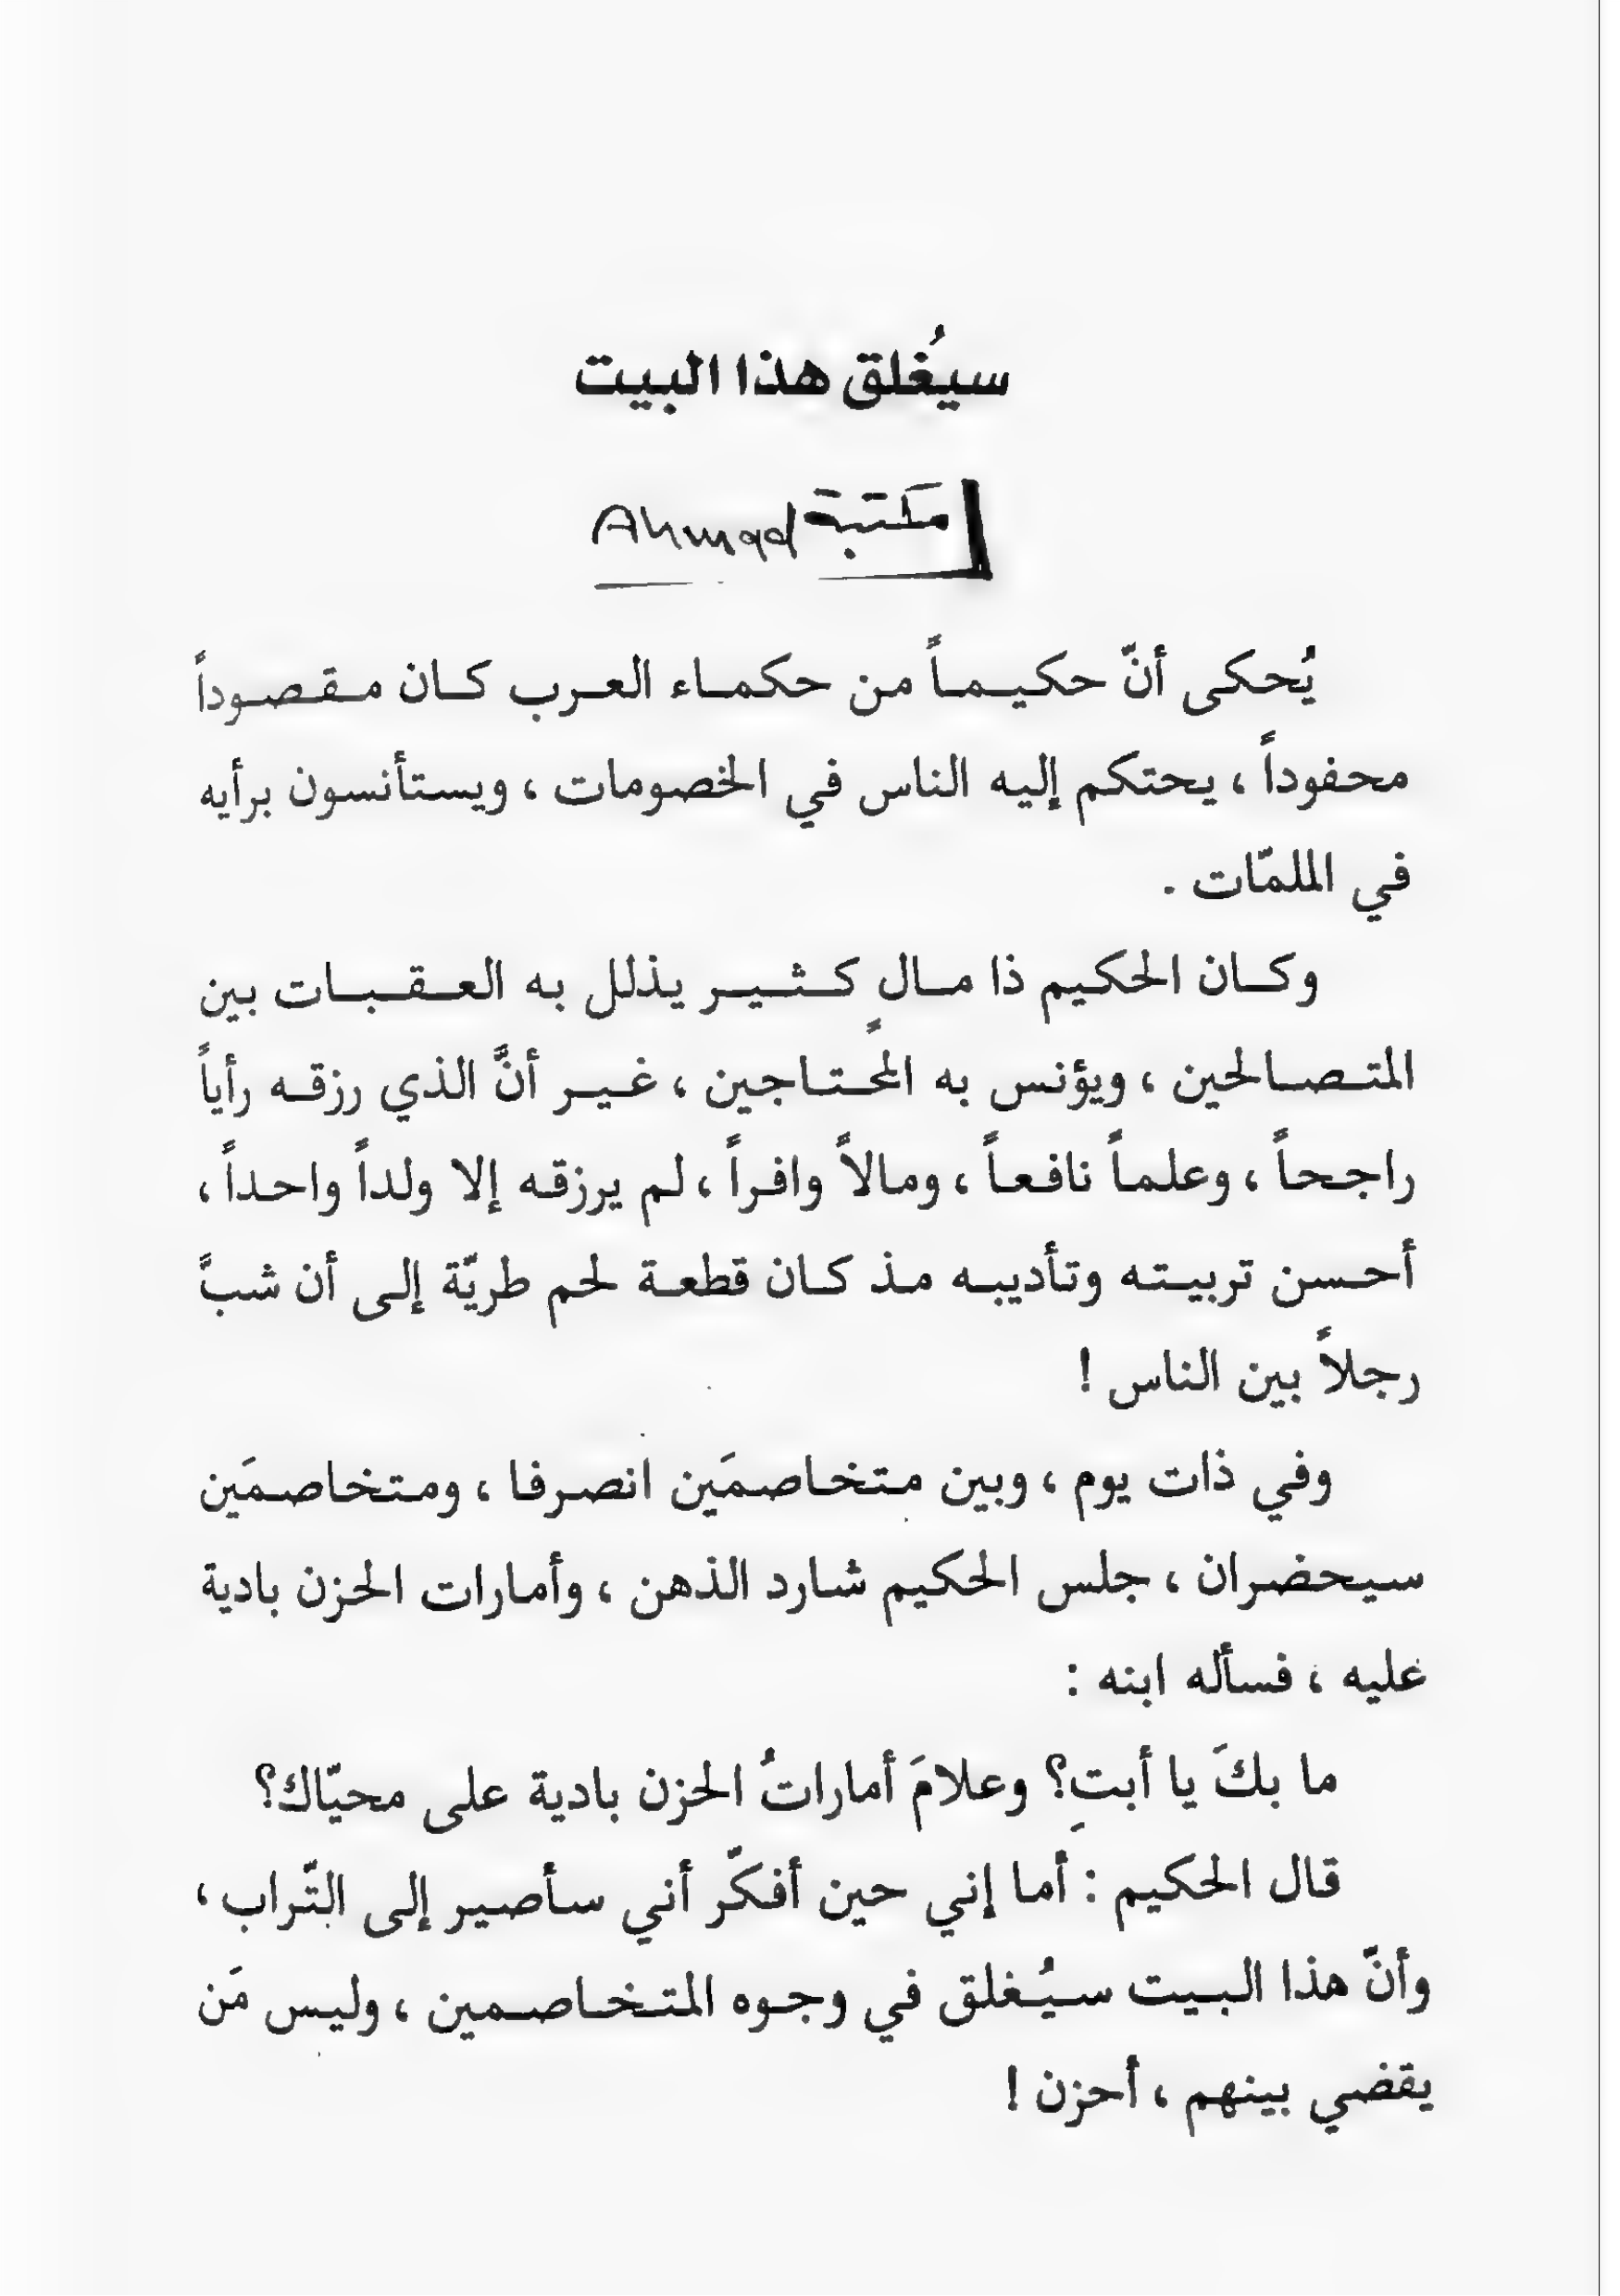 سيُغلق هذا البيت
مكتبة Ahmad
يُحكى أنّ حكيماً من حكماء العرب كان مقصوداً
محفوداً ، يحتكم إليه الناس في الخصومات ، ويستأنسون برأيه
في الملمّات .
وكان الحكيم ذا مالٍ كثير يذلل به العقبات بين
المتصالحين ، ويؤنس به المحتاجين ، غير أنَّ الذي رزقه رأياً
راجحاً ، وعلماً نافعاً ، ومالاً وافراً ، لم يرزقه إلا ولداً واحداً ،
أحسن تربيته وتأديبه مذ كان قطعة لحم طريّة إلى أن شبَّ
رجلاً بين الناس !
وفي ذات يوم ، وبين متخاصمَين انصرفا ، ومتخاصمَين
سيحضران ، جلس الحكيم شارد الذهن ، وأمارات الحزن بادية
عليه ، فسأله ابنه :
ما بكَ يا أبتِ؟ وعلامَ أماراتُ الحزن بادية على محيّاك؟
قال الحكيم : أما إني حين أفكّر أني سأصير إلى التّراب ،
وأنّ هذا البيت سيُغلق في وجوه المتخاصمين ، وليس مَن
يقضي بينهم ، أحزن !